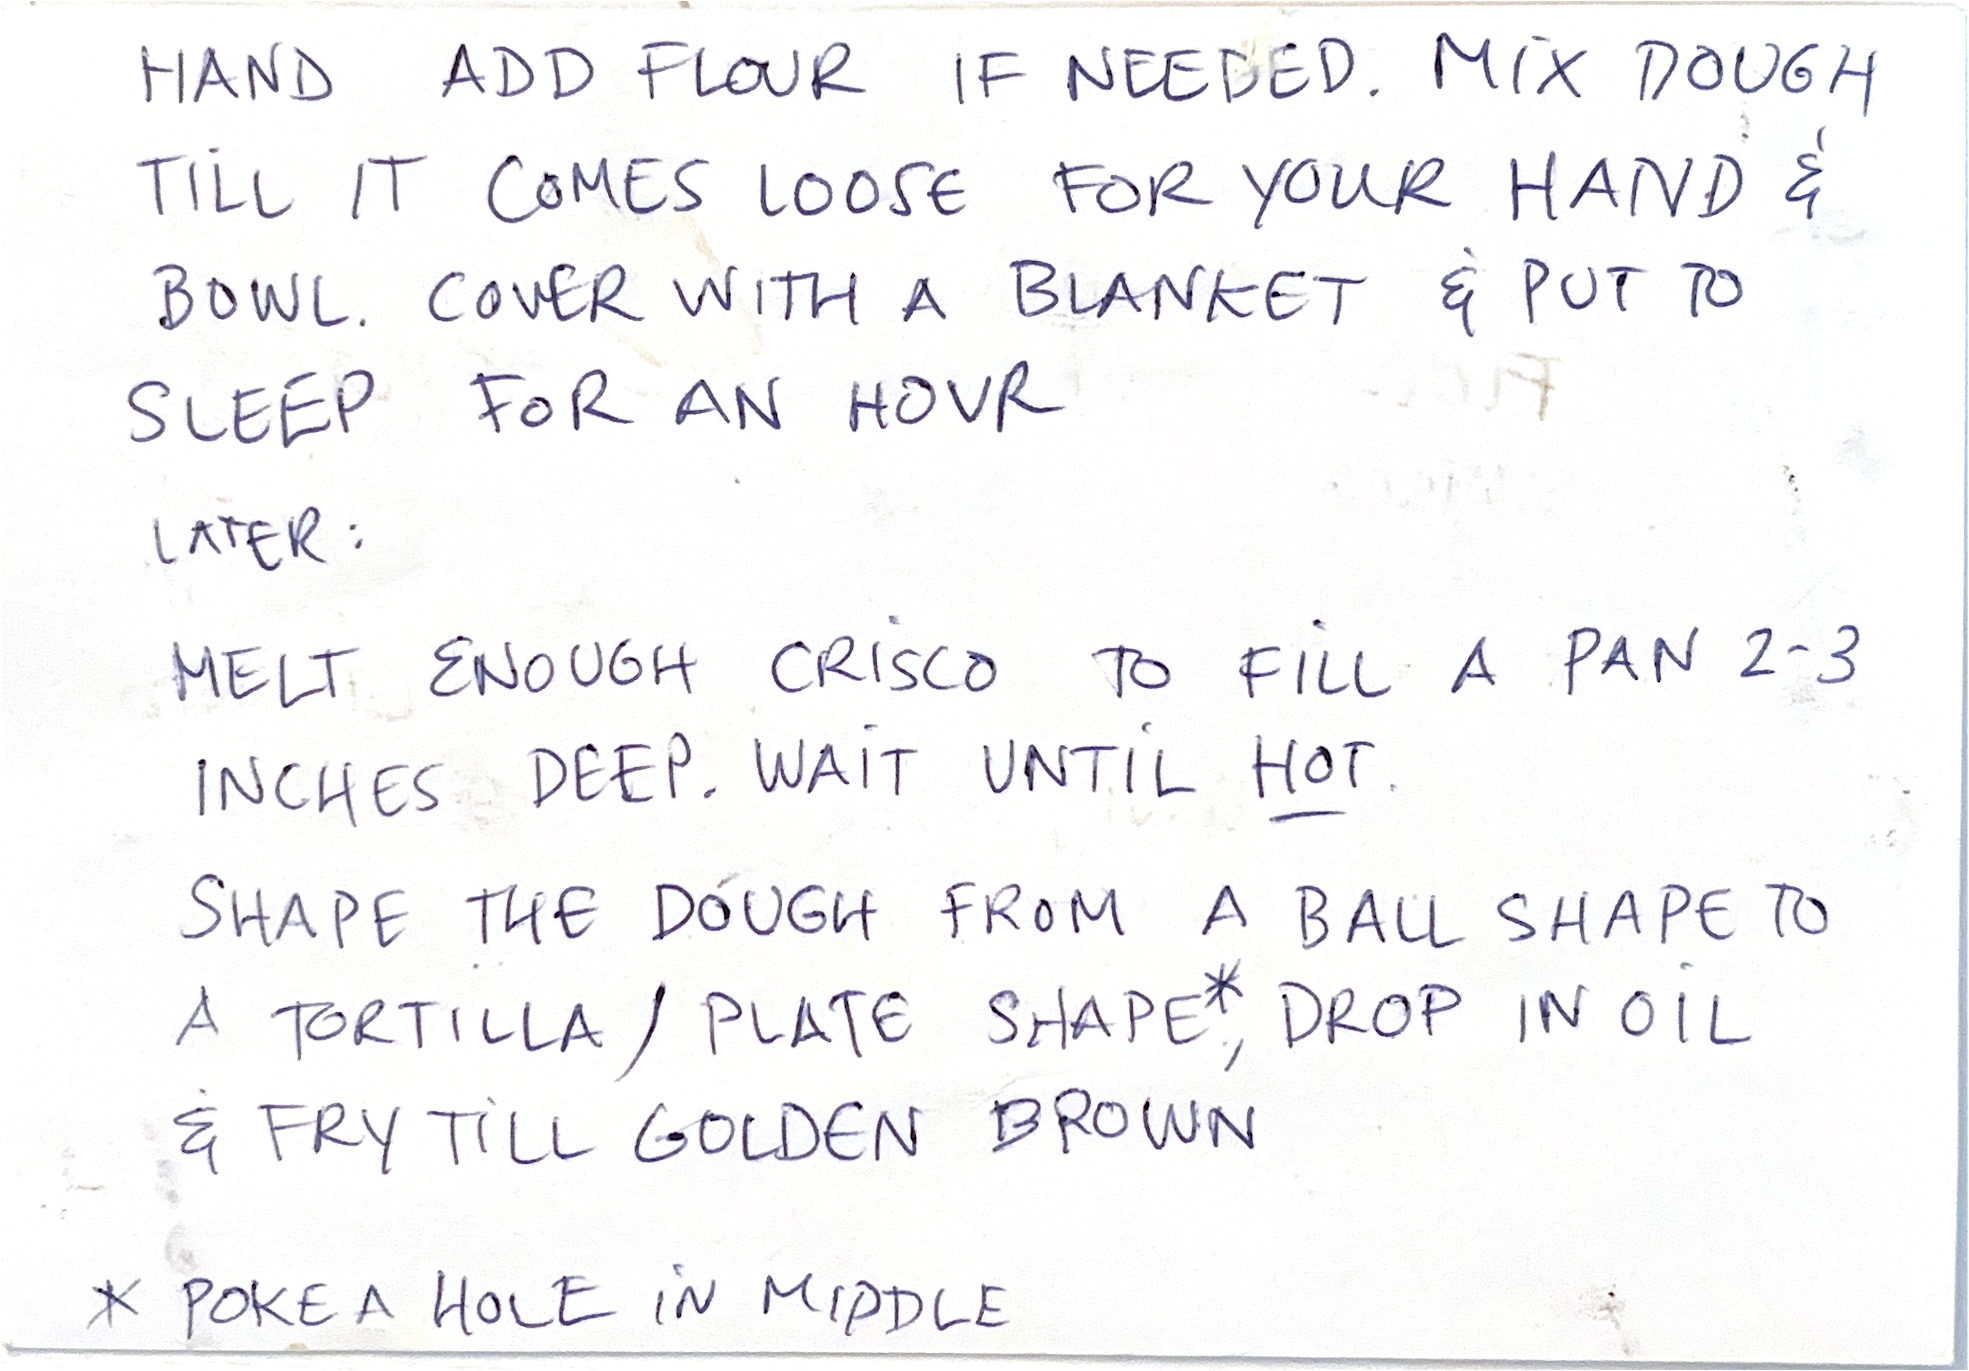 HAND ADD FLOUR IF NEEDED. MIX DOUGH
TILL IT COMES LOOSE FOR YOUR HAND &
BOWL. COVER WITH A BLANKET & PUT TO
SLEEP FOR AN HOUR
LATER:
MELT ENOUGH CRISCO TO FILL A PAN 2-3
INCHES DEEP. WAIT UNTIL HOT.
SHAPE THE DOUGH FROM A BALL SHAPE TO
A TORTILLA / PLATE SHAPE*, DROP IN OIL
& FRY TILL GOLDEN BROWN
* POKE A HOLE IN MIDDLE